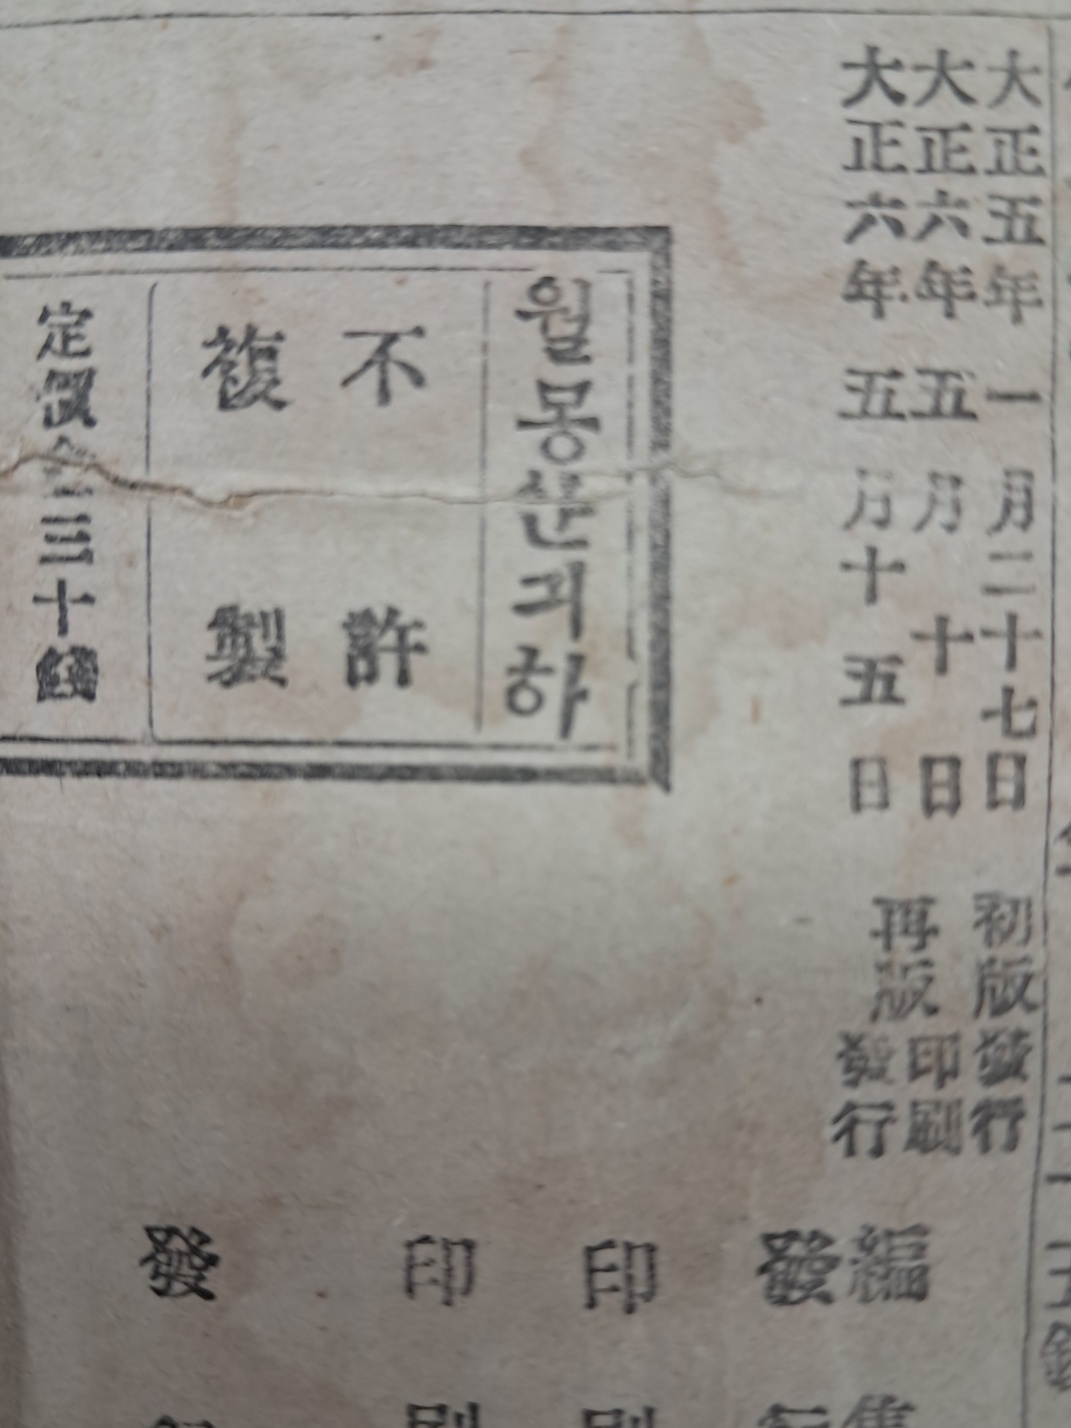 大正五年一月二十七日初版發行
大正六年五月十日再版印刷
大正六年五月十五日再版發行
월봉산긔하
不許
複製
定價金三十錢
編
發
印刷
印刷
發